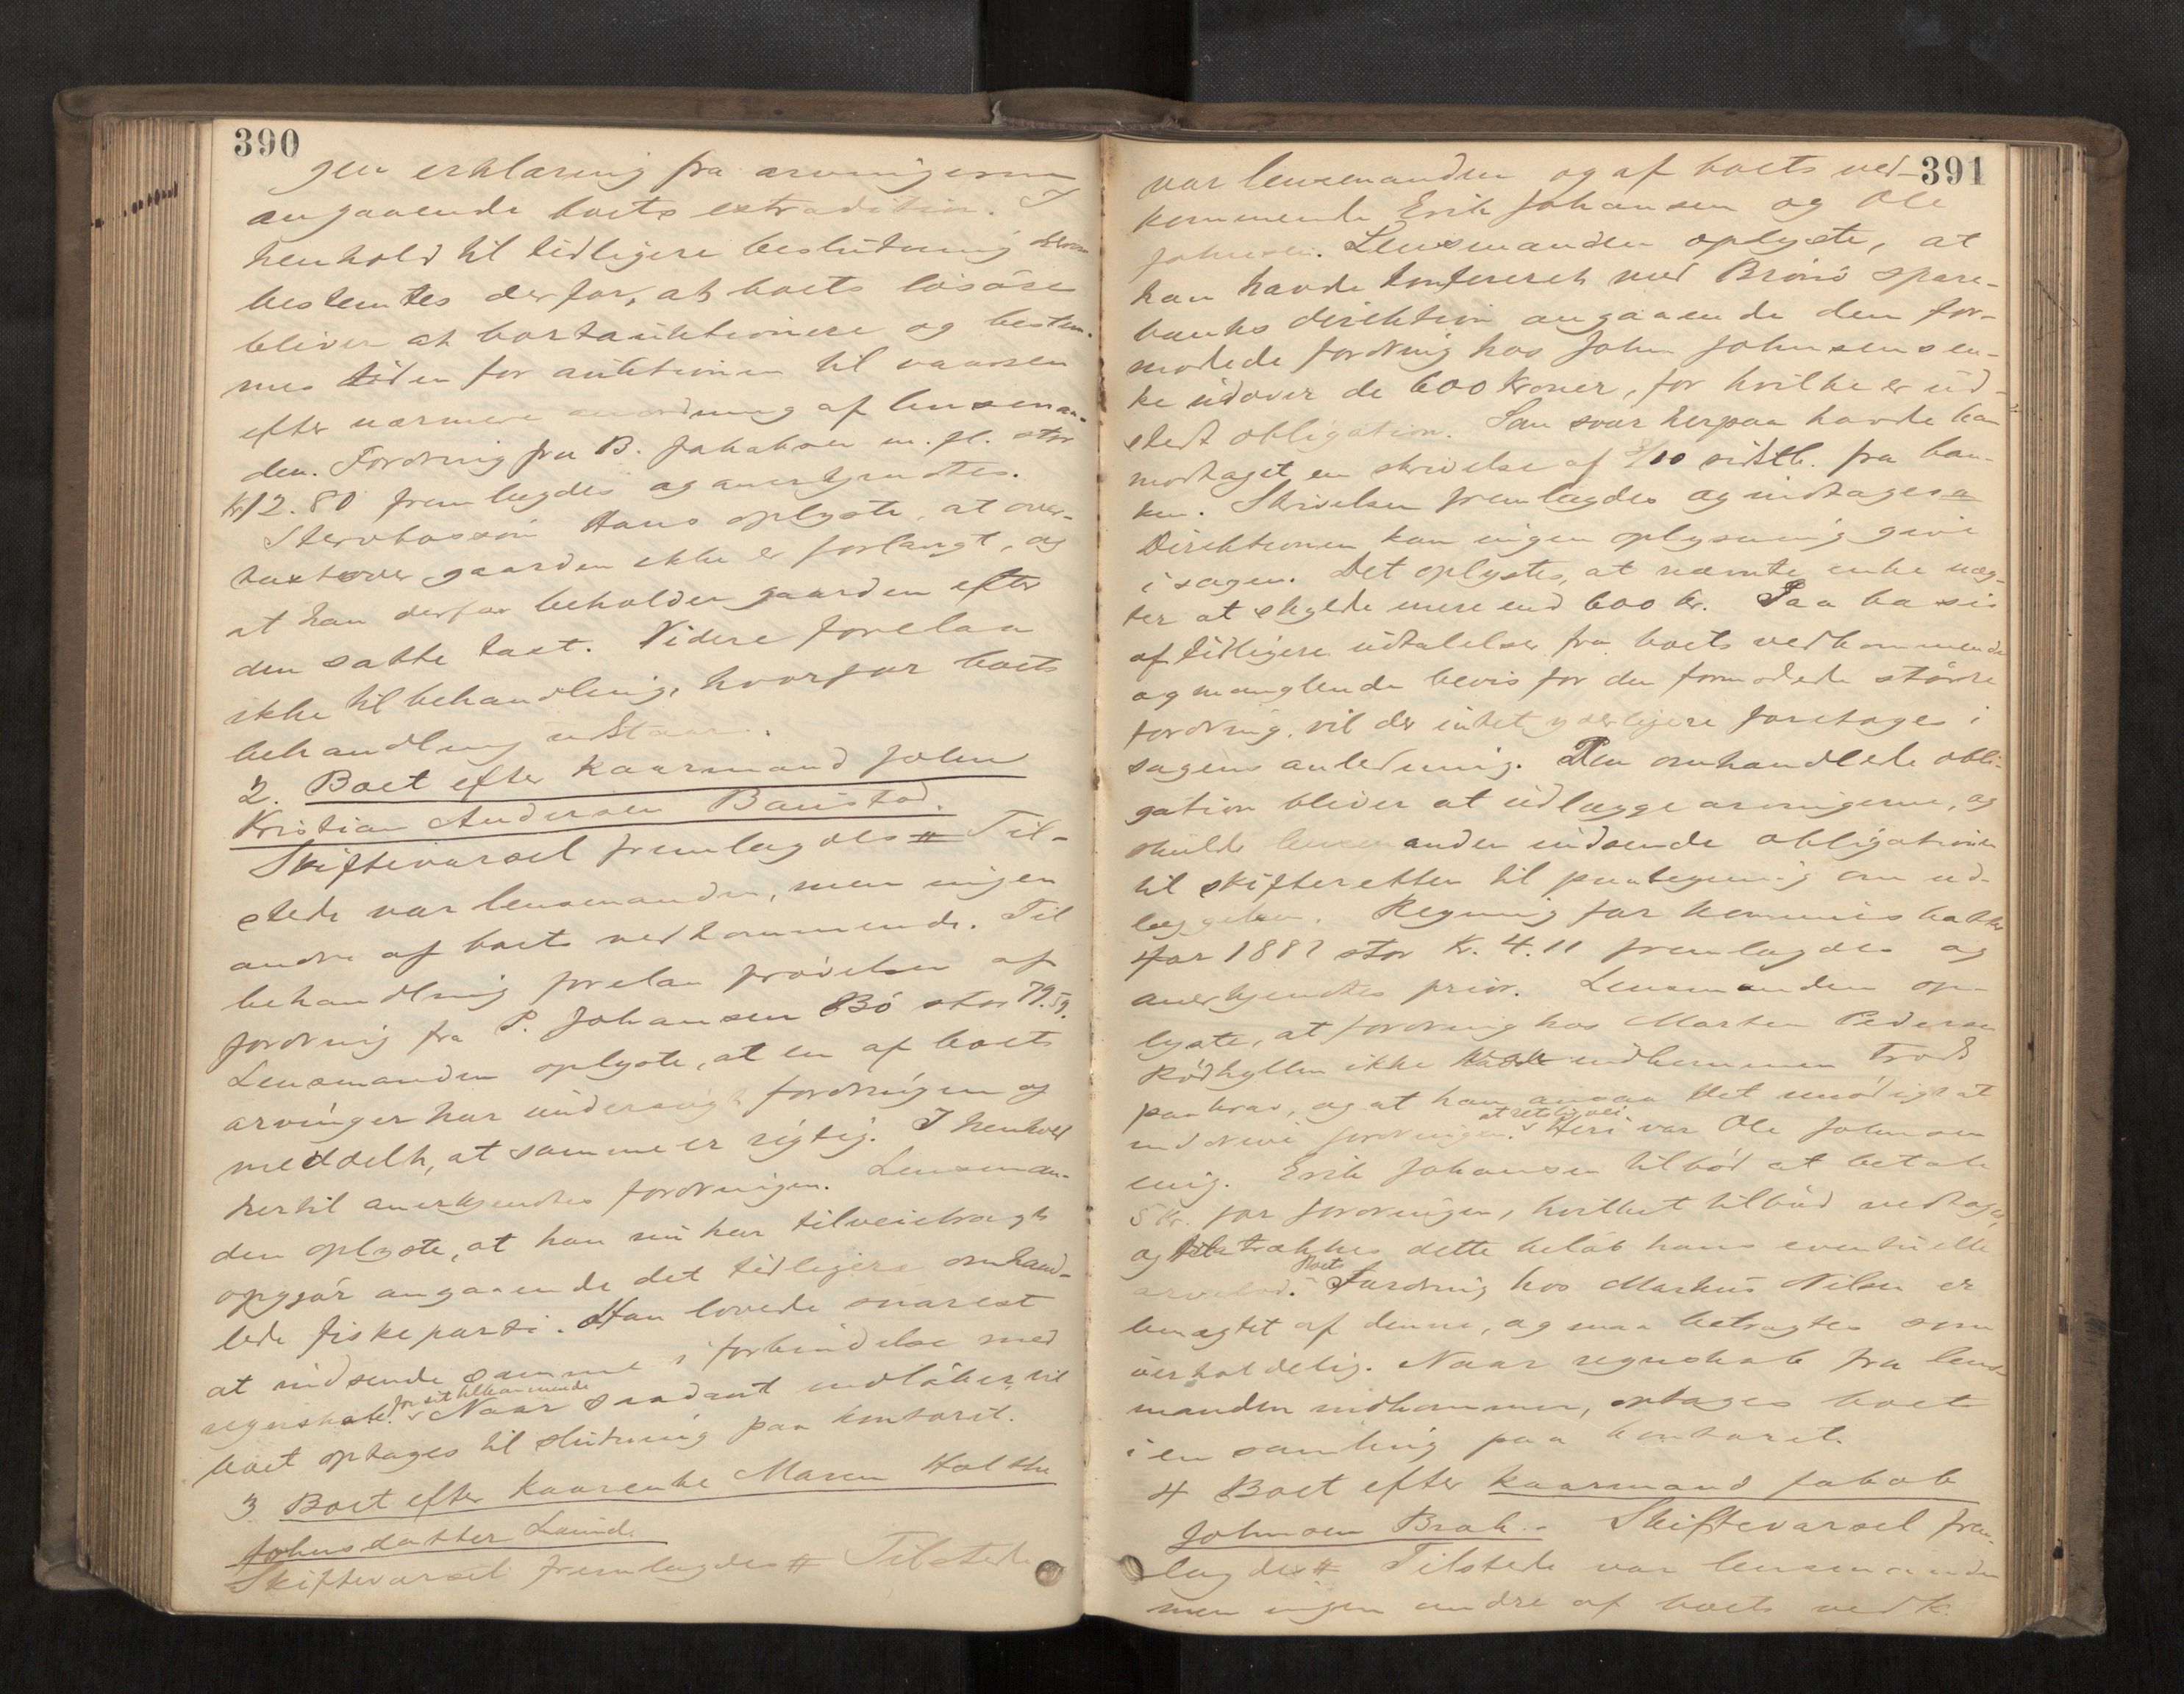 390
gen erklæring fra arvingerne
angaaende boets extradition. I
henhold til tidligere beslutning
bestemtes derfor, at boets løsøre
bliver at bortauktionere og bestem-
mes tiden for auktionen til vaaren
efter nærmere anordning af lensman-
den. Fordring fra B. Jakobsen m. fl. stor
kr 12.80 fremlagdes og anerkjendtes.
Stervbosøn Hans oplyste, at over-
taxt over gaarden ikke er forlangt, og
at han derfor beholder gaarden efter
den satte taxt. Videre forelaa
ikke til behandling, hvorfor boets
behandling udstaar.
2. Boet efter Kaarmand John
Kristian Andersen Baustad.
Skiftevarsel fremlagdes # Til-
stede var lensmanden, men ingen
andre af boets vedkommende. Til
behandling forelaa prøvelsen af
fordring fra P. Johansen Bø stor 79.59.
Lensmanden oplyste, at en af boets
arvinger har undersøgt fordringen og
meddelt, at samme er rigtig. I henhold
hertil anerkjendtes fordringen. Lensman-
den oplyste, at han nu har tilveiebragt
opgjør angaaende det tidligere omhand-
lede fiskeparti. Han lovede snarest
at indsende samme i forbindelse med
for sit tilkommende
regnskab. Naar saadant indløber, vil
boet optages til slutning paa kontoret.
3. Boet efter Kaarenke Maren
Johnsdatter Lund.
Skiftevarsel fremlagdes # Tilstede
391
var lensmanden og af boets ved-
kommende Erik Johansen og Ole
Johnsen. Lensmanden oplyste, at
han havde konfereret med Brønø spare-
banks direktion angaaende den for-
modede fordring hos John Johnsens en-
ke udover de 600 kroner, for hvilke er ud-
stedt obligation. Som svar herpaa havde han
modtaget en skrivelse af /10 sidstl. fra ban-
ken. Skrivelsen fremlagdes og indtages #
Direktionen kan ingen oplysning give
i sagen. Det oplystes, at nævnte enke næg-
ter at skylde mere end 600 kr. Paa basis
af tidligere udtalelser fra boets vedkommende
og manglende bevis for den formodede større
fordring, vil der intet yderligere foretages i
sagens anledning. Den omhandlede obli-
gation bliver at udlægge arvingerne, og
skulde lensmanden indsende obligationen
til skifteretten til paategning om ud-
læggelsen. Regning for kommuneskatter
for 1887 stor kr. 4.11 fremlagdes og
anerkjendtes prior. Lensmanden op-
lyste, at fordring hos Morten Pedersen
Rødhyllen ikke indkommen trods
paakrav, og at han ansaa det unødigt at
at retslig vei.
inddrive fordringen. Heri var Ole Johnsen
enig. Erik Johansen tilbød at betale
5 kr. for fordringen, hvilket tilbud vedtages,
og trækkes dette beløb hans eventuelle
Boets
arvelod. Fordring hos Markus Nilsen er
benægtet af denne, og maa betragtes som
uerholdelig. Naar regnskab fra lens-
manden indkommer, optages boet
i en samling paa kontoret.
4 Boet efter Kaarmand Jakob
Johnsen Brak. Skiftevarsel frem-
lagdes # Tilstede var lensmanden
men ingen andre af boets vedk.